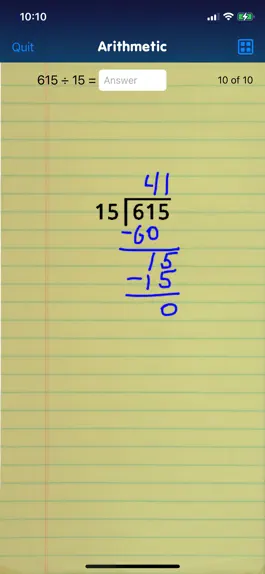 10:10
Quit Arithmetic
615 ÷ 15 = Answer 10 of 10
41
15 615
-60
15
-15
0